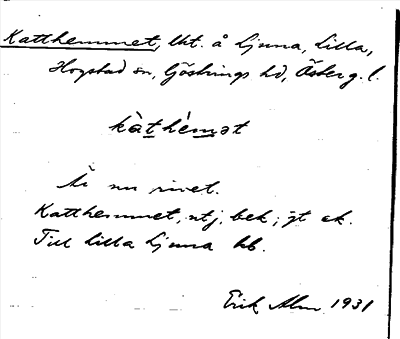 Katthemmet, lht. å Ljuna, Lilla,
Hogstad sn, Göstrings hd, Österg. l.
kàthèmət
Är nu rivet.
Katthemmet, utj. bek; gt ek.
Till Lilla Ljuna hb.
Erik Alm 1931